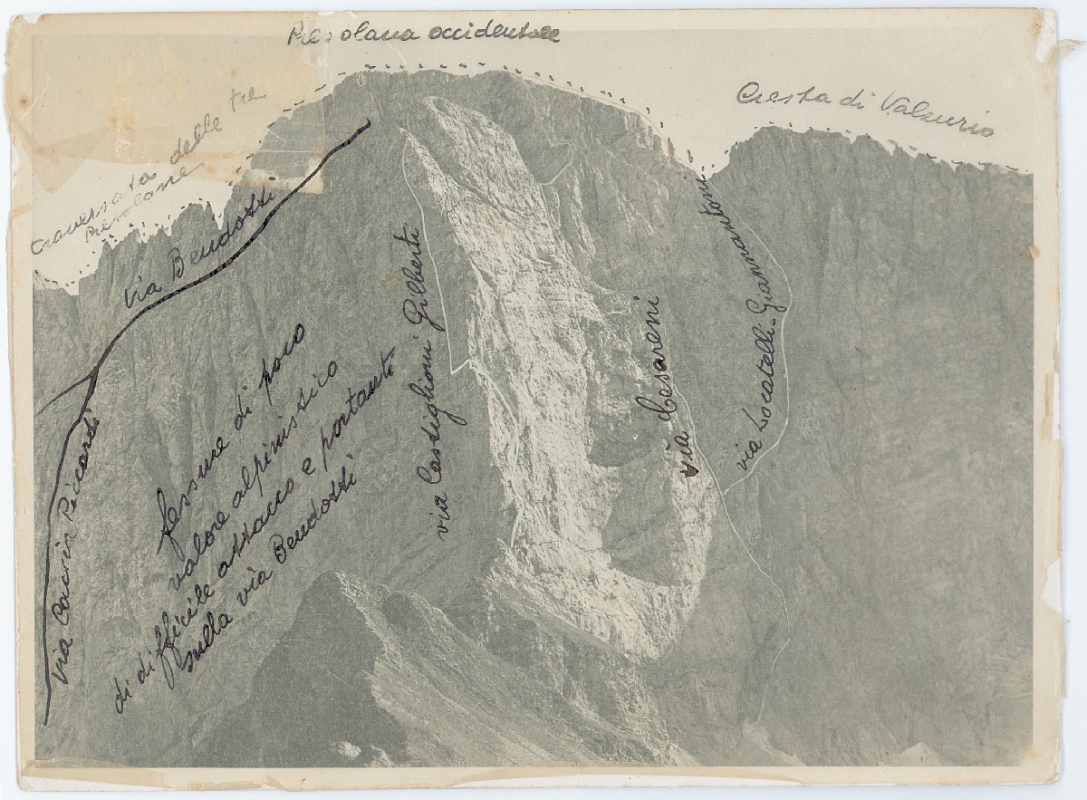 Presolana occidentale
Cresta di Valzurio
traversata delle tre
Presolane
via Bendotti
via Castiglioni Gilberti
via Cesareni
via Locatelli-Giannantoni
fessure di poco
valore alpinistico
di difficile attacco e portante
sulla via Bendotti
via Picardi